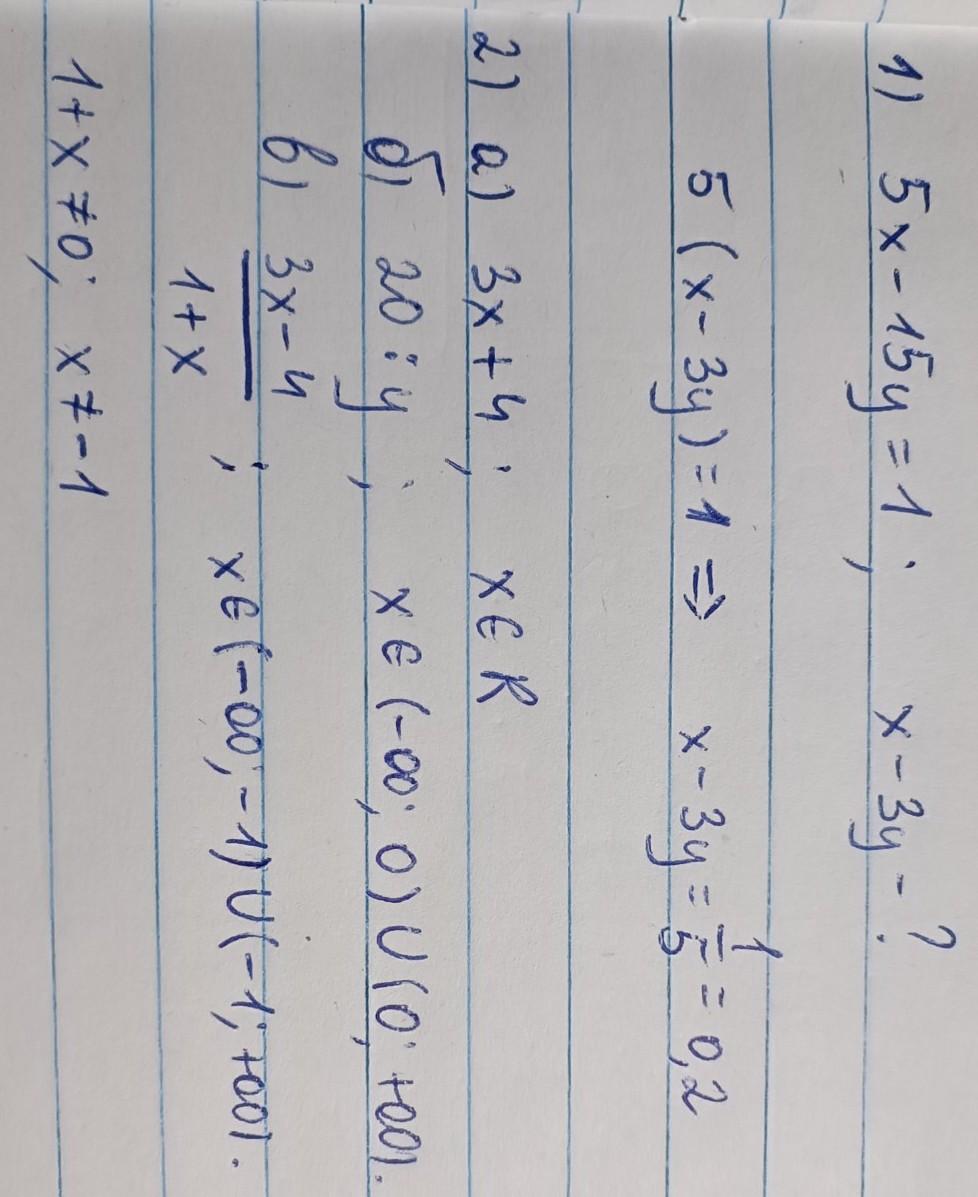 1) 5x - 15y = 1; x - 3y - ?
5 (x - 3y) = 1 ⇒ x - 3y = 1/5 = 0,2
2) а) 3x + 4; x ∈ R
б) 20 : y; x ∈ (-∞; 0) ∪ (0; +∞).
в) 3x - 4 / 1 + x ; x ∈ (-∞; -1) ∪ (-1; +∞).
1 + x ≠ 0; x ≠ -1